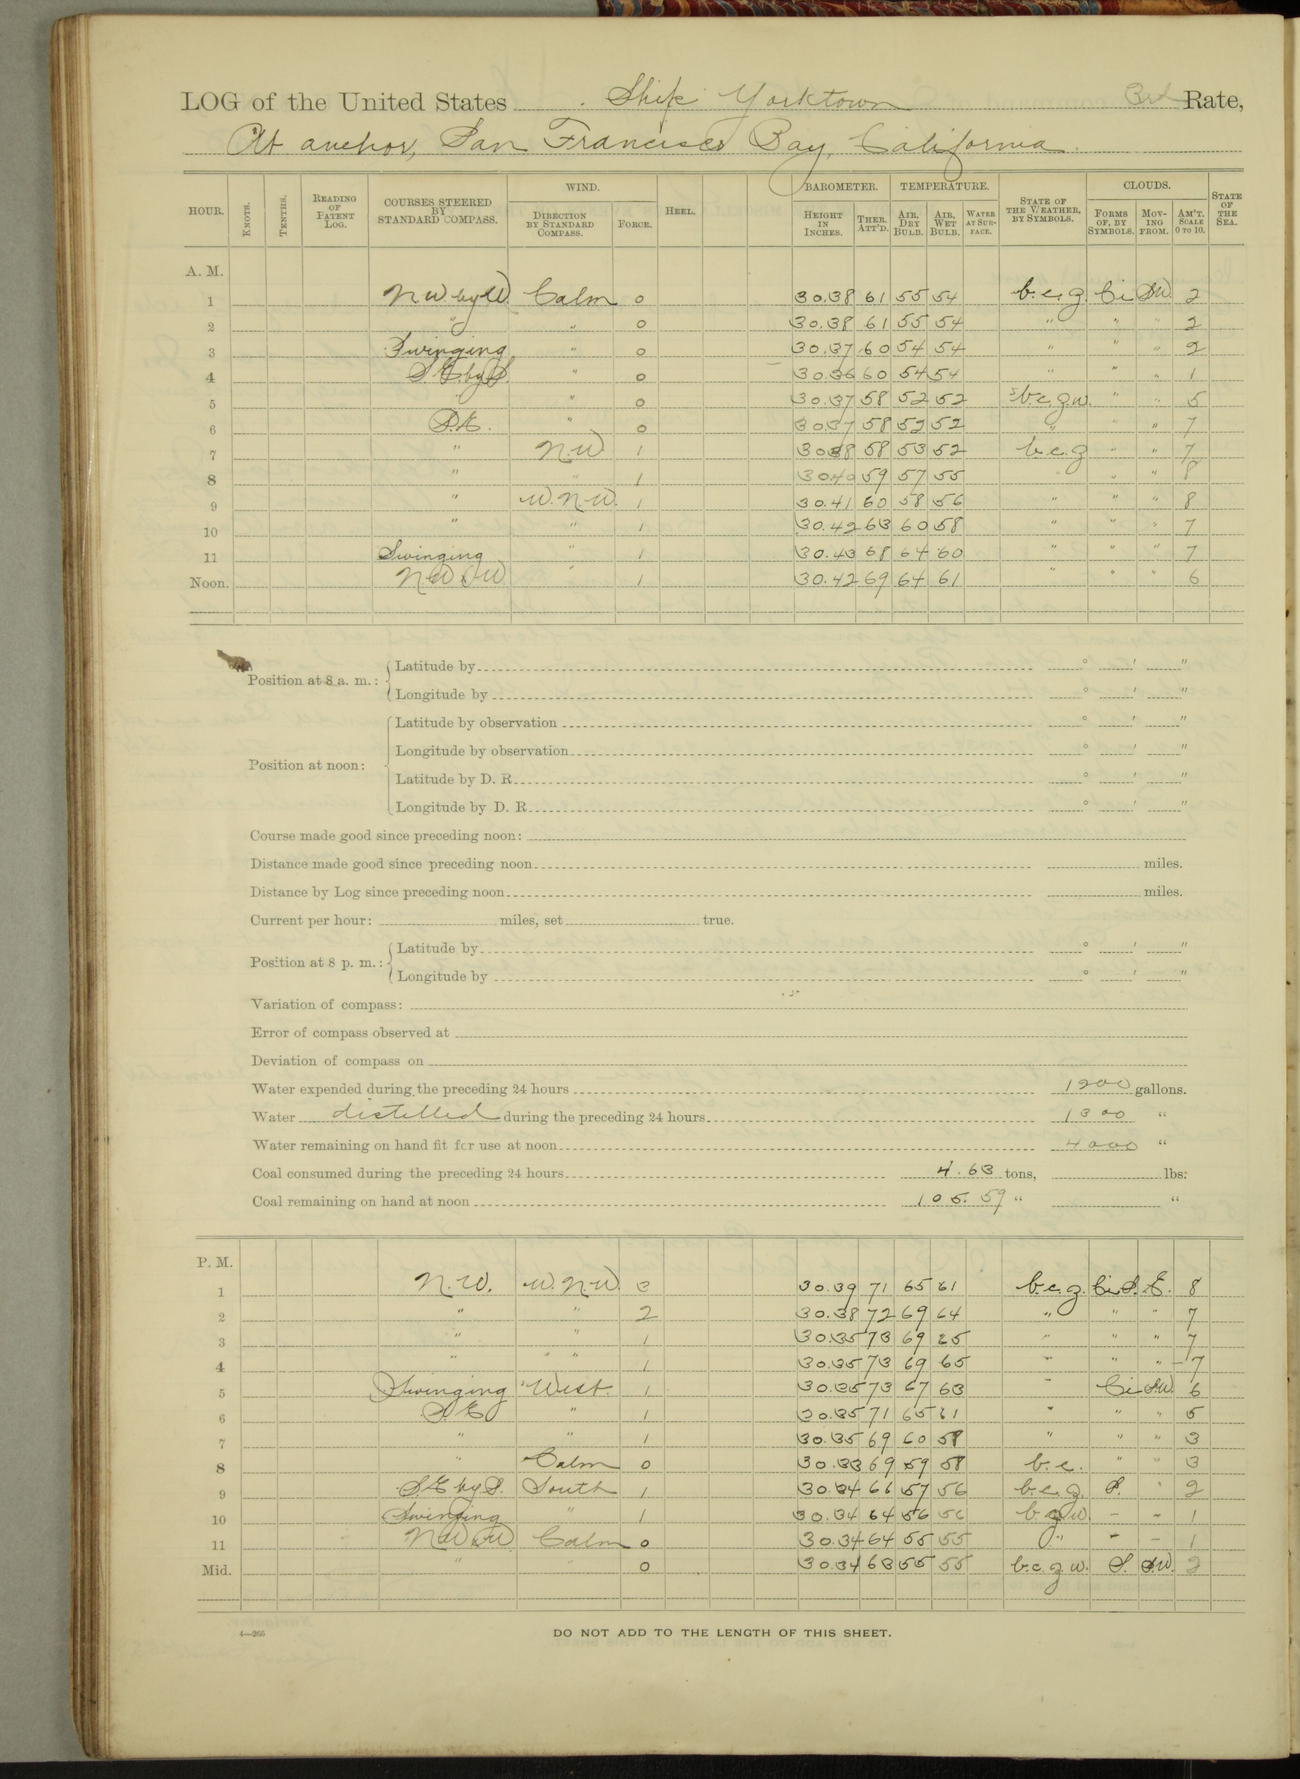 LOG of the United States Ship Yorktown 3rd Rate,
At anchor, San Francisco Bay, California.
HOUR. KNOTS. TENTHS. READING OF PATENT LOG. COURSES STEERED BY STANDARD COMPASS. WIND. DIRECTION BY STANDARD COMPASS. FORCE. HEEL. BAROMETER. HEIGHT IN INCHES. THER. ATT'D. TEMPERATURE. AIR, DRY BULB. AIR, WET BULB. WATER AT SURFACE. STATE OF THE WEATHER, BY SYMBOLS. CLOUDS. FORMS OF, BY SYMBOLS. MOVING FROM. AM'T. SCALE 0 TO 10. STATE OF THE SEA.
A. M.
1 NW by W Calm 0 30.38 61 55 54 b.c.g. Ci SW 2
2 " " 0 30.38 61 55 54 " " " 2
3 Swinging " 0 30.37 60 54 54 " " " 2
4 S.E. by S. " 0 30.36 60 54 54 " " " 1
5 " " 0 30.37 58 52 52 b.c.g.w. " " 5
6 S.E. " 0 30.37 58 52 52 " " " 7
7 " N.W 1 30.38 58 53 52 b.c.g " " 7
8 " " 1 30.40 59 57 55 " " 8
9 " W.N.W. 1 30.41 60 58 56 " " " 8
10 " " 1 30.42 63 60 58 " " " 7
11 Swinging " 1 30.43 68 64 60 " " " 7
Noon. " 1 30.42 69 64 61 " " " 6
Position at 8 a. m.: Latitude by ° ' "
Longitude by ° ' "
Position at noon: Latitude by observation ° ' "
Longitude by observation ° ' "
Latitude by D. R. ° ' "
Longitude by D. R. ° ' "
Course made good since preceding noon:
Distance made good since preceding noon miles.
Distance by Log since preceding noon miles.
Current per hour: miles, set true.
Position at 8 p. m.: Latitude by ° ' "
Longitude by ° ' "
Variation of compass:
Error of compass observed at
Deviation of compass on
Water expended during the preceding 24 hours 1200 gallons.
Water distilled during the preceding 24 hours 1300 "
Water remaining on hand fit for use at noon 4000 "
Coal consumed during the preceding 24 hours 4.63 tons, lbs.
Coal remaining on hand at noon 105.59 " "
P. M.
1 N.W. W.N.W. 30.39 71 65 61 b.c.g. Ci.S. E. 8
2 " " 2 30.38 72 69 64 " " " 7
3 " " 1 30.35 73 69 65 " " " 7
4 " " 1 30.35 73 69 65 " " " 7
5 Swinging West. 1 30.35 73 67 63 " Ci SW. 6
6 S.E " 1 30.35 71 65 61 " " " 5
7 " " 1 30.35 69 60 58 " " " 3
8 " Calm 0 30.33 69 59 58 b.c. " " 3
9 S.E by S. South 1 30.34 66 57 56 b.c.g. S. " 2
10 Swinging " 1 30.34 64 56 56 b.g.w. - - 1
11 Calm 0 30.34 64 55 55 " - - 1
Mid. " " 0 30.34 63 55 55 b.c.g.w. S. SW. 2
4—266
DO NOT ADD TO THE LENGTH OF THIS SHEET.